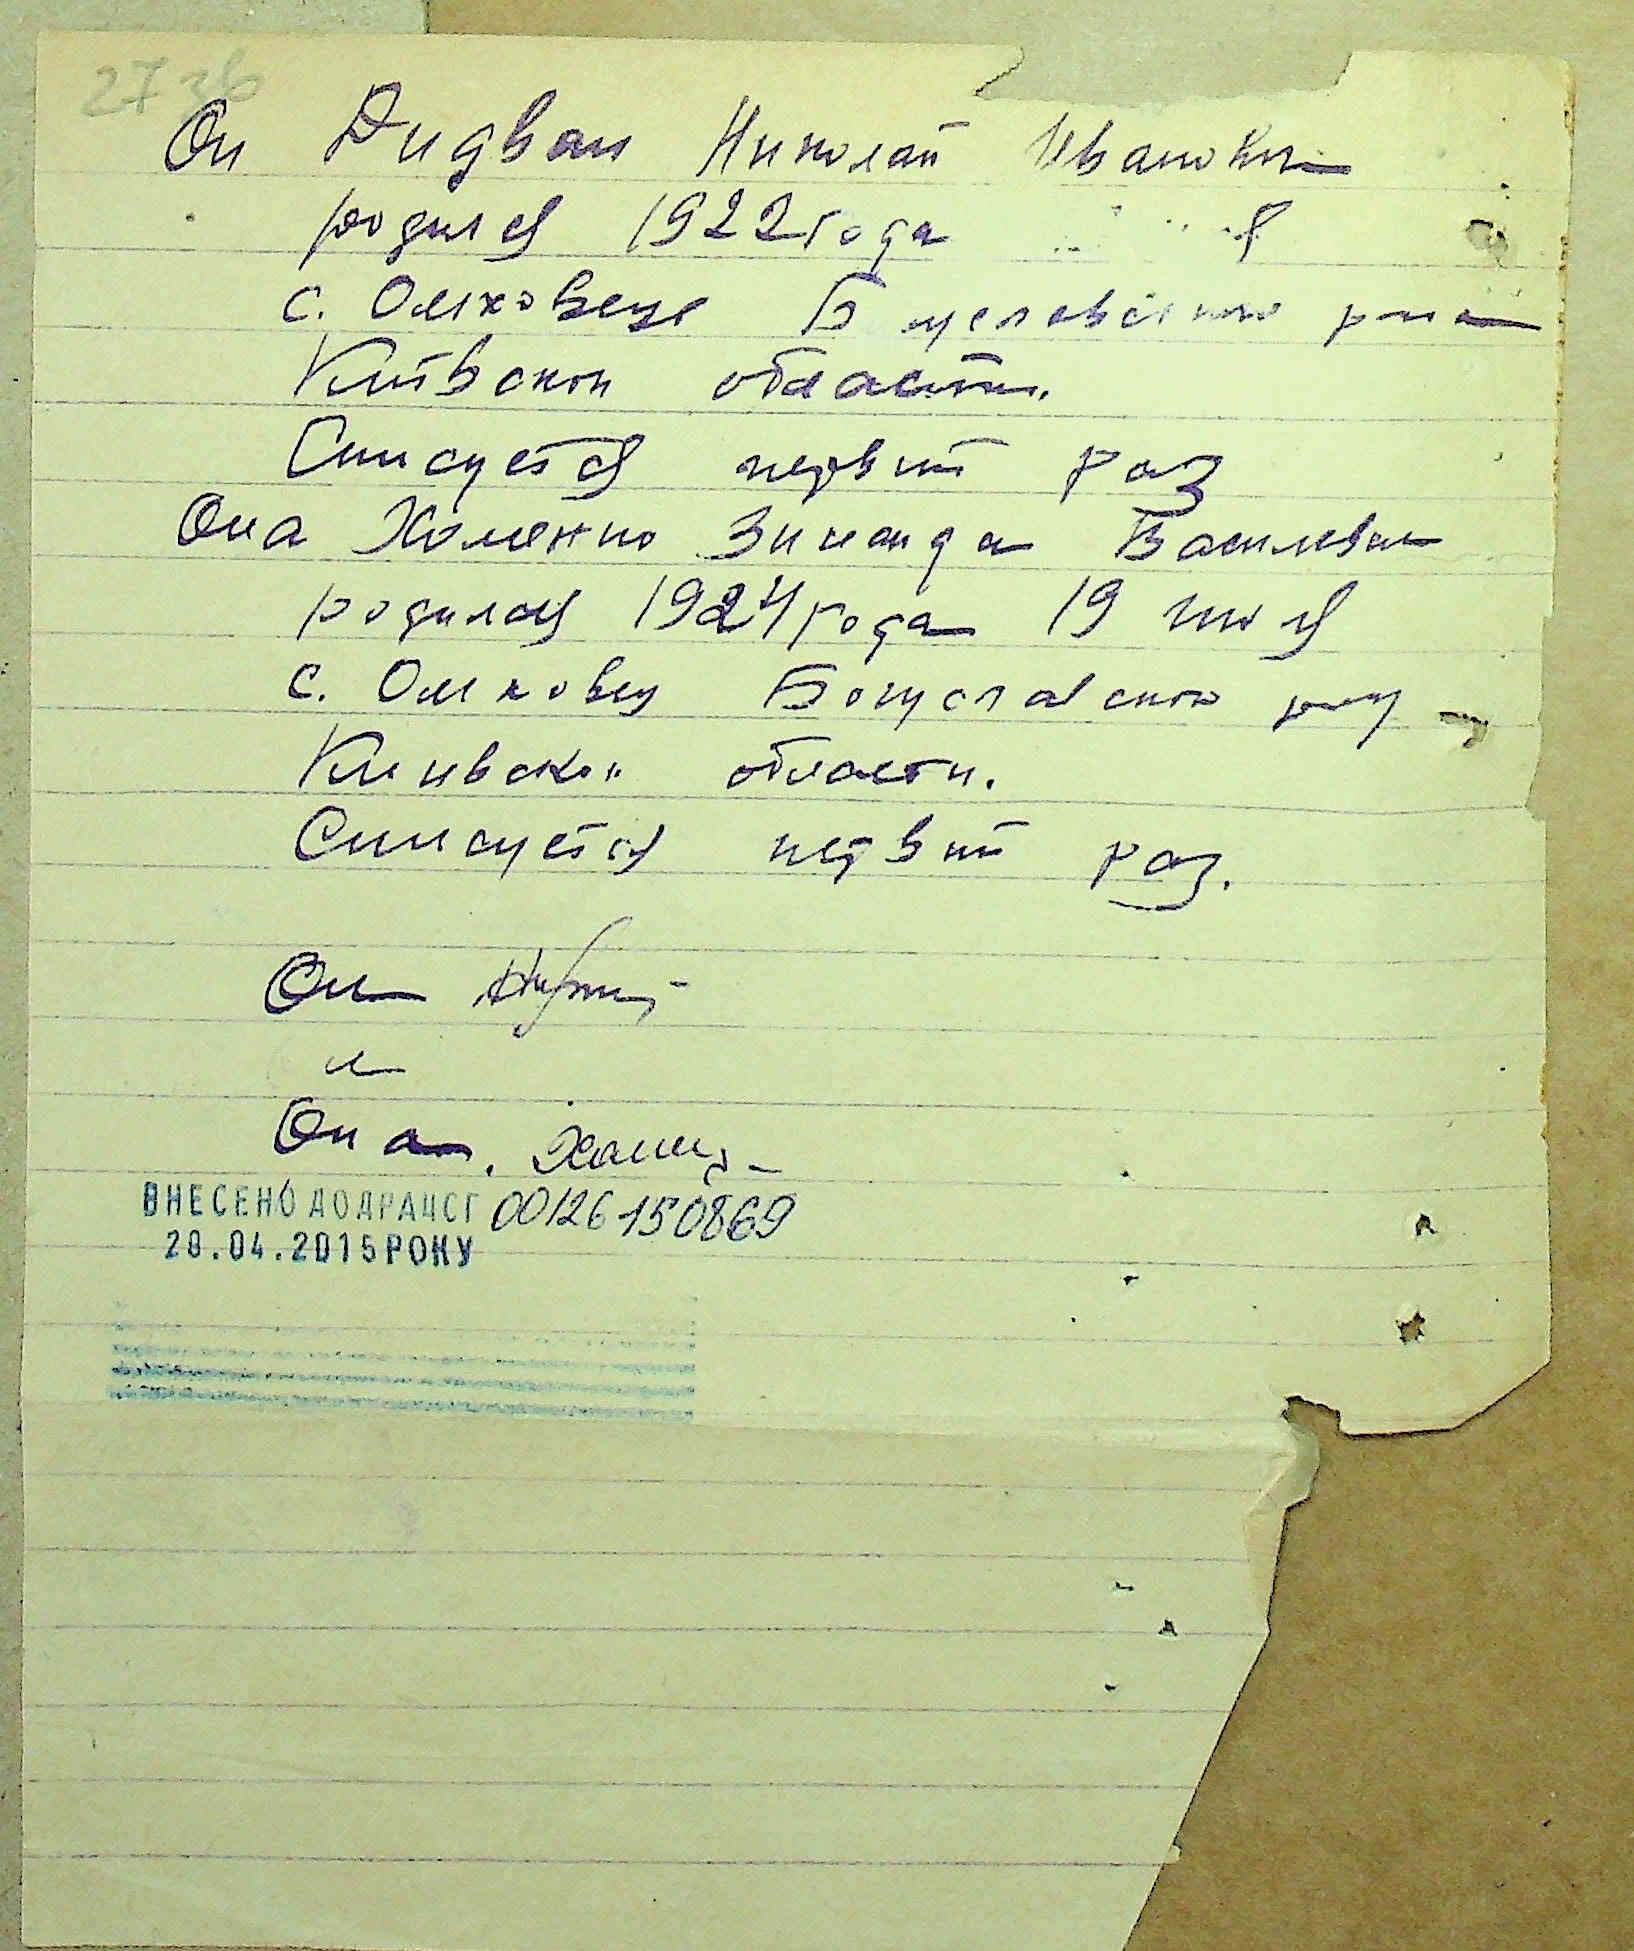 27 зв
Он Дидван Николай Иванович
родился 1922 года
с. Ольховець Богуславского р-на
Киівской области.
Списуется первий раз
Она Хоменко Зинаида Василевна
родилася 1924 года 19
с. Ольховец Богуславского р-на
Киивской области.
Списуется первий раз.
Он
и
Она.
ВНЕСЕНО ДО ДРАЦСГ 00126150869
28.04.2015 РОКУ